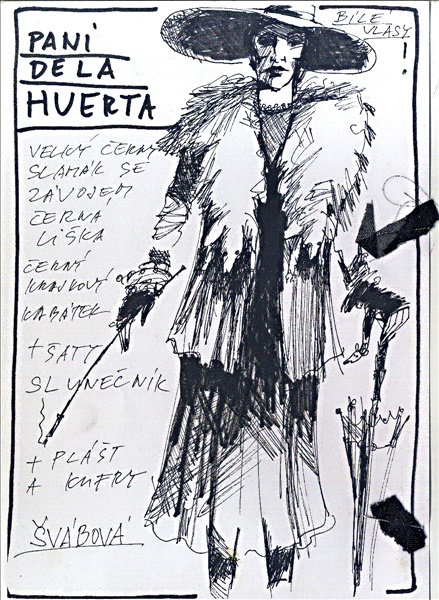 PANÍ
DE LA
HUERTA
BÍLÉ
VLASY
!
VELKÝ ČERNÝ
SLAMÁK SE
ZÁVOJEM
ČERNÁ
LIŠKA
ČERNÝ
KRAJKOVÝ
KABÁTEK
+ ŠATY
SLUNEČNÍK
+ PLÁŠŤ
A KUFRY
ŠVÁBOVÁ